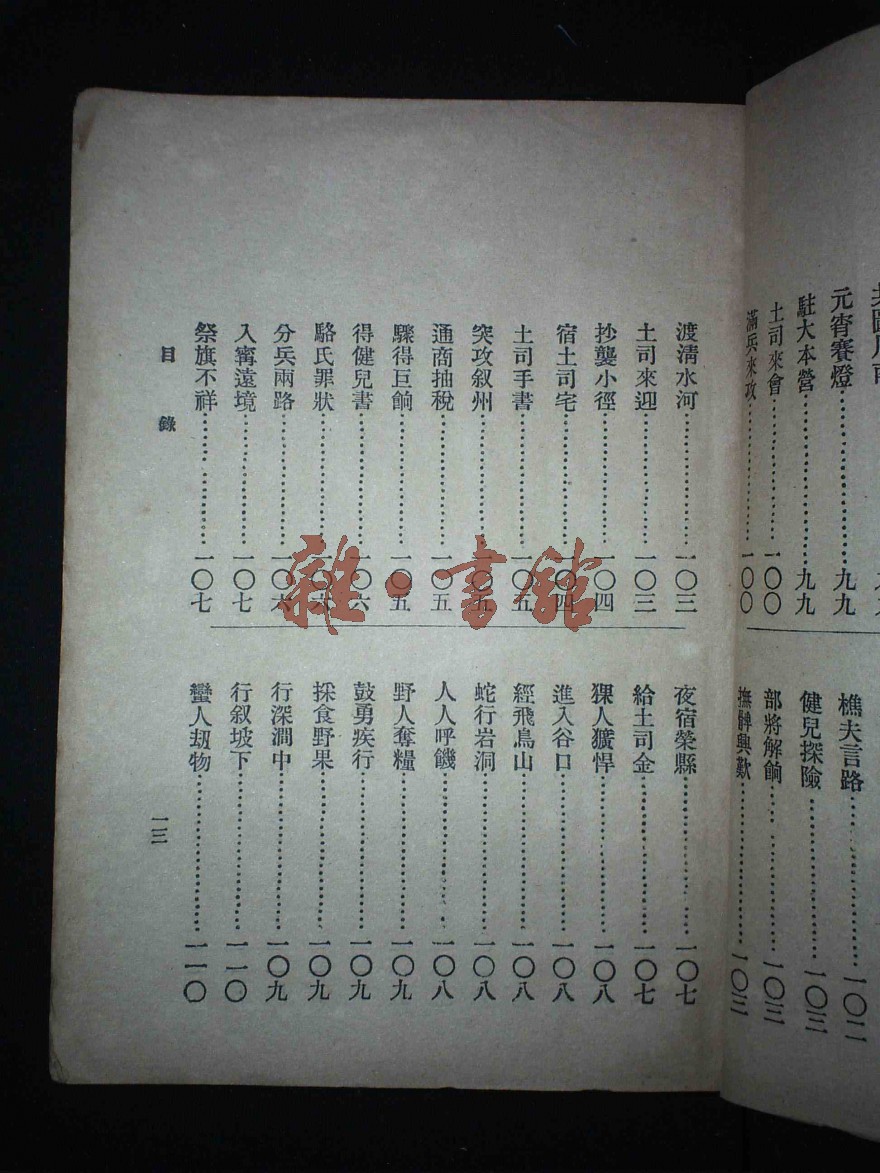 元宵賽燈⋯⋯九九
駐大本營⋯⋯九九
土司來會⋯⋯一〇〇
滿兵來攻⋯⋯一〇〇
樵夫言路⋯⋯一〇二
健兒探險⋯⋯一〇三
部將解餉⋯⋯一〇三
撫髀興歎⋯⋯一〇三
渡清水河⋯⋯一〇三
土司來迎⋯⋯一〇三
抄襲小徑⋯⋯一〇四
宿土司宅⋯⋯一〇四
土司手書⋯⋯一〇五
突攻叙州⋯⋯一〇五
通商抽稅⋯⋯一〇五
驟得巨餉⋯⋯一〇五
得健兒書⋯⋯一〇六
駱氏罪狀⋯⋯一〇六
分兵兩路⋯⋯一〇六
入甯遠境⋯⋯一〇七
祭旗不祥⋯⋯一〇七
夜宿榮縣⋯⋯一〇七
給土司金⋯⋯一〇七
猓人獷悍⋯⋯一〇八
進入谷口⋯⋯一〇八
經飛鳥山⋯⋯一〇八
蛇行岩洞⋯⋯一〇八
人人呼饑⋯⋯一〇八
野人奪糧⋯⋯一〇九
鼓勇疾行⋯⋯一〇九
採食野果⋯⋯一〇九
行深澗中⋯⋯一〇九
行叙坡下⋯⋯一一〇
蠻人刼物⋯⋯一一〇
目錄
一三
雜·書館